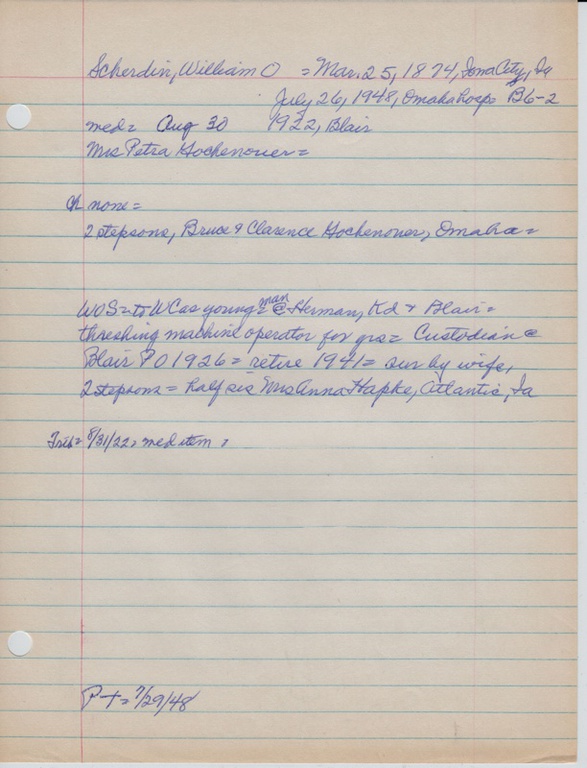 Scherdin, William O = Mar. 25, 1874, Iona City, Ia
July 26, 1948, Omaha hosp = B6-2
med = Aug 30 1922, Blair
Mrs Petra Hochenouer =
Ch none =
2 stepsons, Bruce & Clarence Hochenouer, Omaha =
WOS = to WC as young man = @ Herman, Kd & Blair =
threshing machine operator for yrs = Custodian @
Blair PO 1926 = retire 1941 = sur by wife,
2 stepsons = half sis Mrs Anna Hapke, Atlantis, Ia
Trib = 8/31/22 = med item =
P-T = 7/29/48